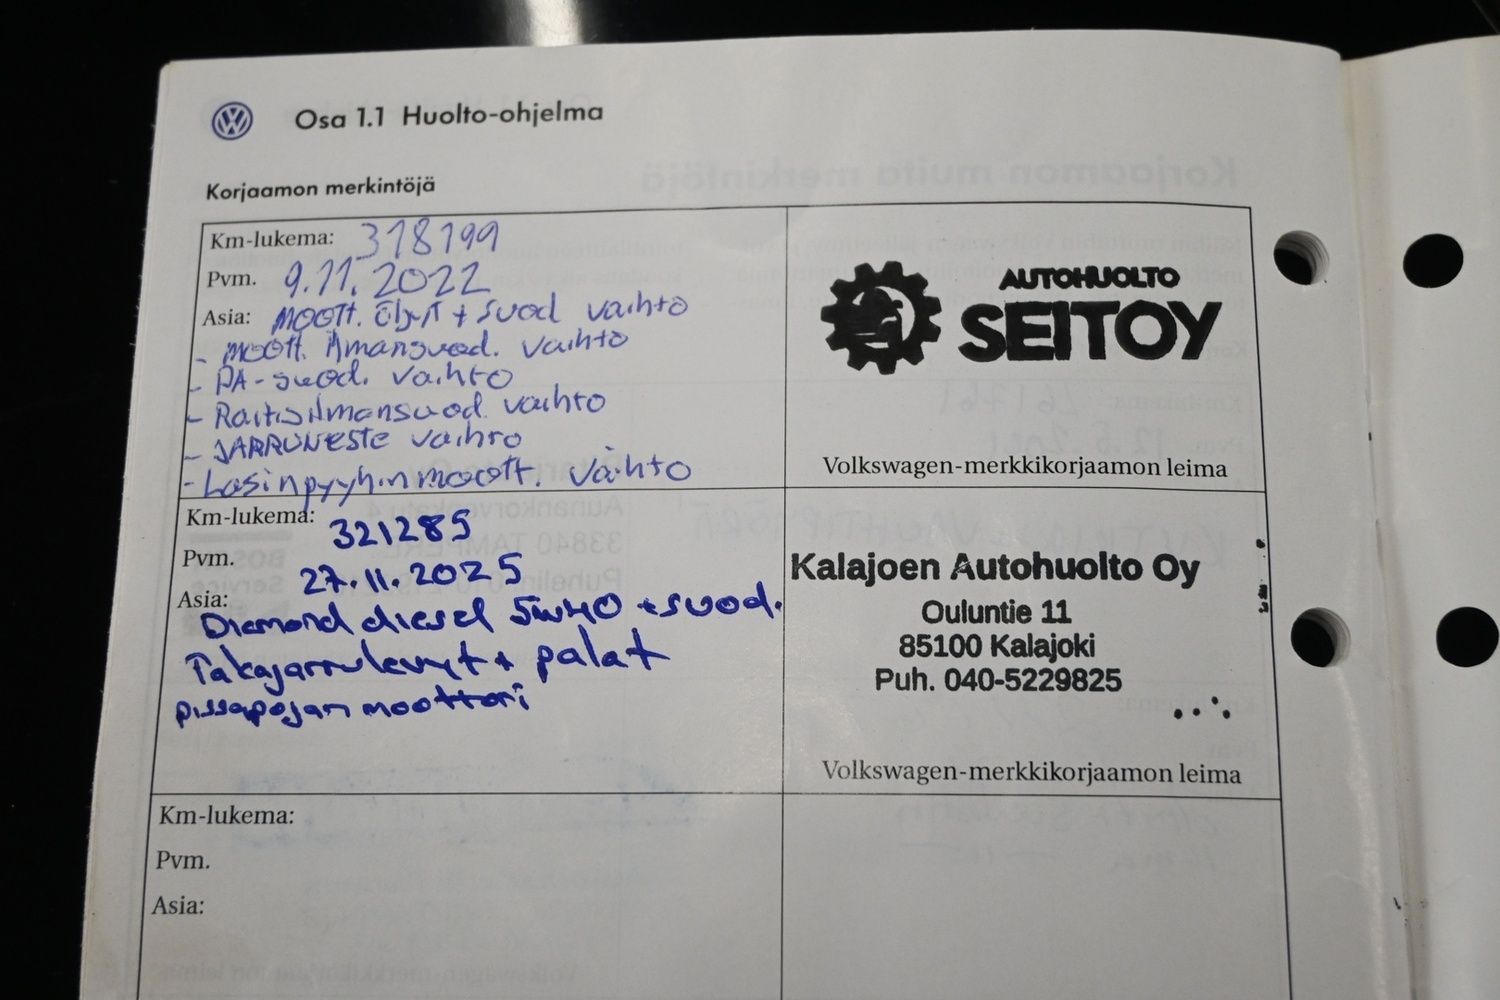 Osa 1.1 Huolto-ohjelma
Korjaamon merkintöjä
Km-lukema: 318199
Pvm. 9.11.2022
Asia: MOOTT. ÖLJYT + SUOD vaihto
- MOOTT. ilmansuod. vaihto
- PA-suod. vaihto
- Raitisilmansuod. vaihto
- JARRUNESTE vaihto
- Lasinpyyhinmoott. vaihto
AUTOHUOLTO
SEITOY
Volkswagen-merkkikorjaamon leima
Km-lukema: 321285
Pvm. 27.11.2025
Asia: Diamond diesel 5W40 + suod.
Takajarrulevyt + palat
pissapojan moottori
Kalajoen Autohuolto Oy
Ouluntie 11
85100 Kalajoki
Puh. 040-5229825
Volkswagen-merkkikorjaamon leima
Km-lukema:
Pvm.
Asia: